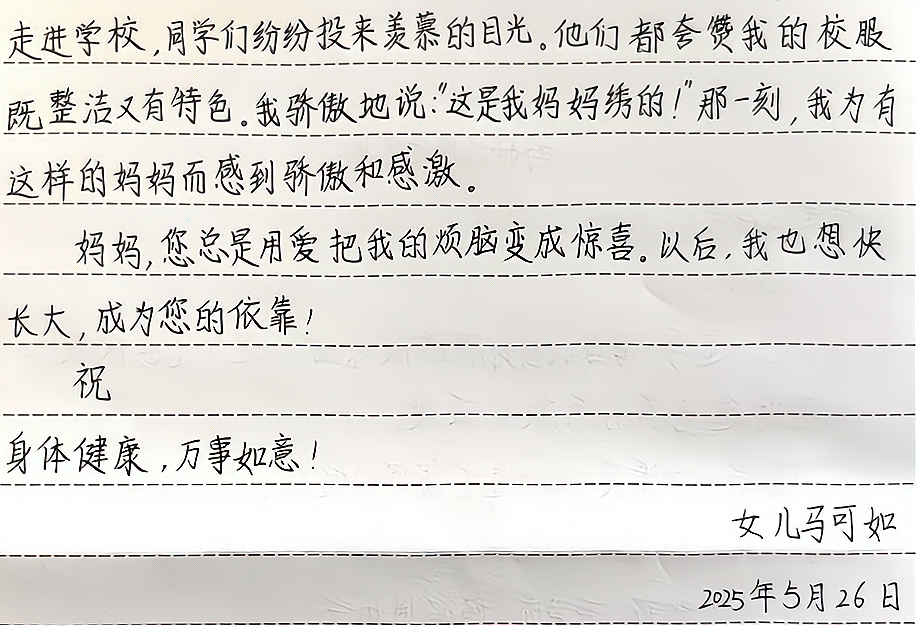 走进学校,同学们纷纷投来羡慕的目光。他们都夸赞我的校服
既整洁又有特色。我骄傲地说:“这是我妈妈绣的!”那一刻,我为有
这样的妈妈而感到骄傲和感激。
妈妈,您总是用爱把我的烦脑变成惊喜。以后,我也想快
长大,成为您的依靠!
祝
身体健康,万事如意!
女儿马可如
2025年5月26日